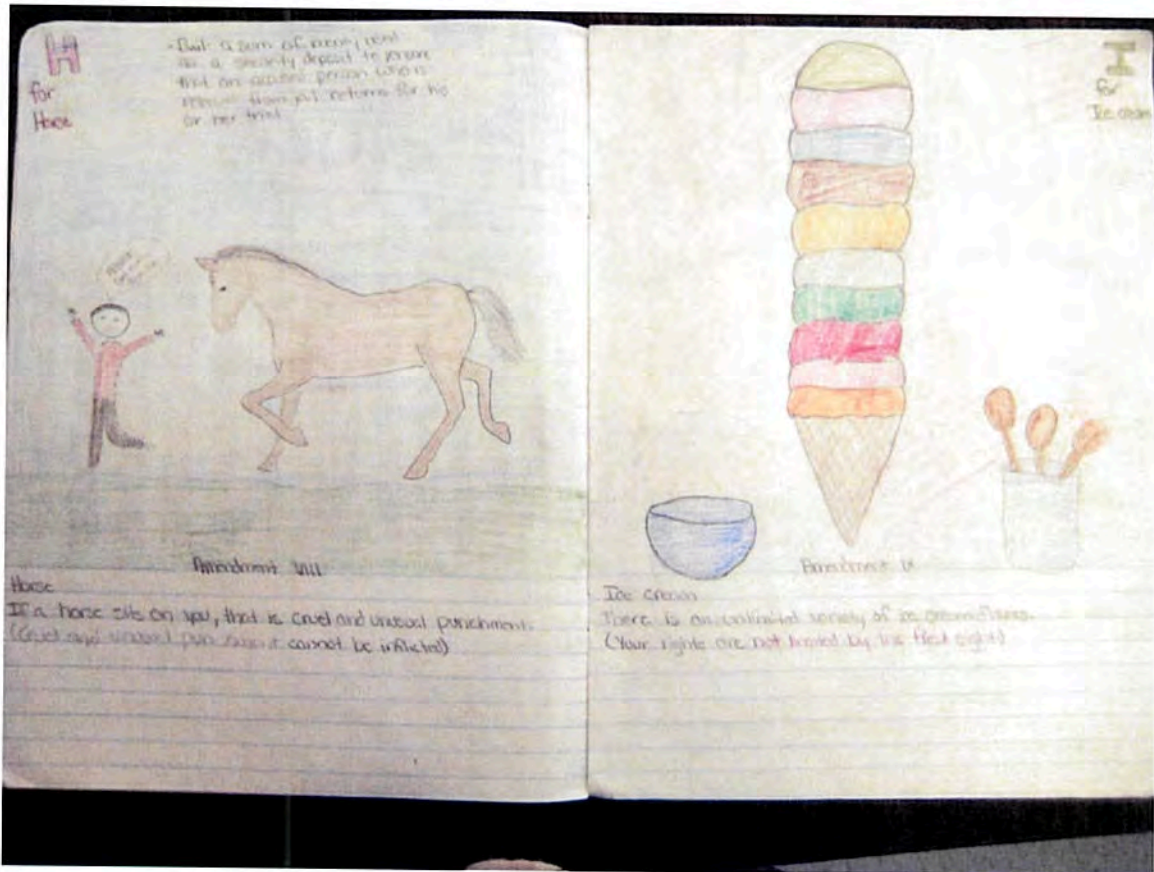 H
for
Horse
- Bail: a sum of money used
as a security deposit to ensure
that an accused person who is
from jail returns for his
or her trial
Amendment VIII
Horse
If a horse sits on you, that is cruel and unusual punishment.
(Cruel and unusual punishment cannot be inflicted)
I
for
Ice cream
Amendment IX
Ice cream
There is an unlimited variety of ice cream flavors.
(Your rights are not limited by the first eight)